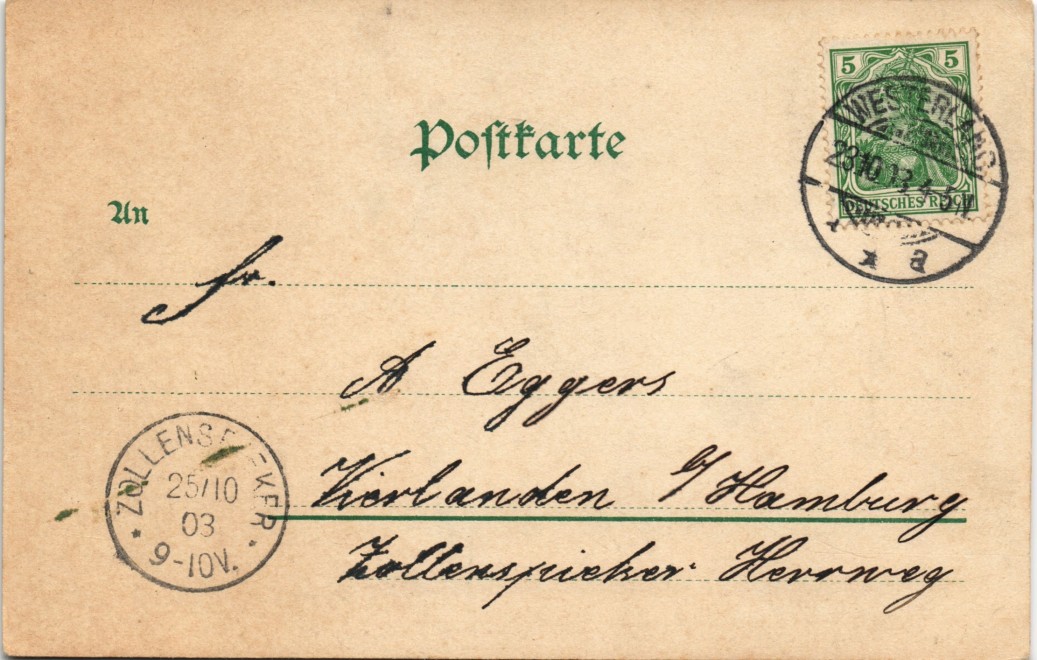 Postkarte
5 5
DEUTSCHES REICH
WESTERLAND
23.10.03 4-5N
* a
An
Fr.
A Eggers
Vierlanden b/Hamburg
Zollenspieker Herrweg
ZOLLENSPIEKER
25/10
03
* 9-10V. *